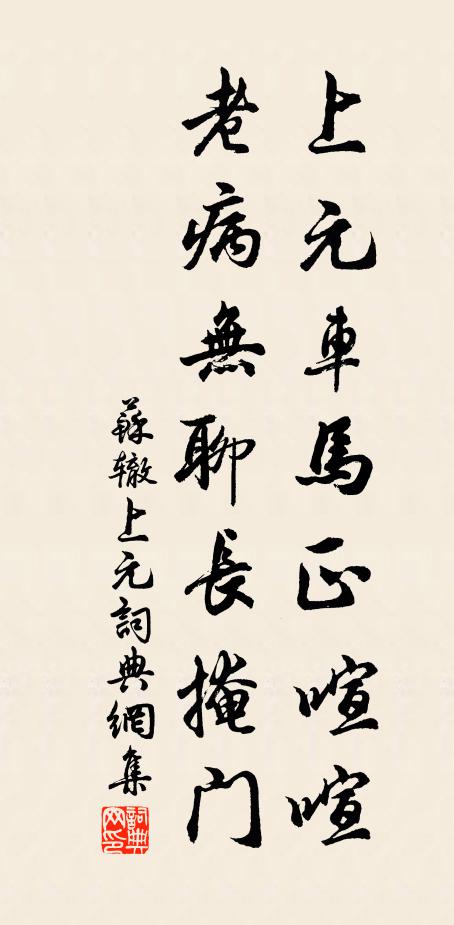 上元車馬正喧喧
老病無聊長掩門
蘇辙上元詞典網集
詞典网印